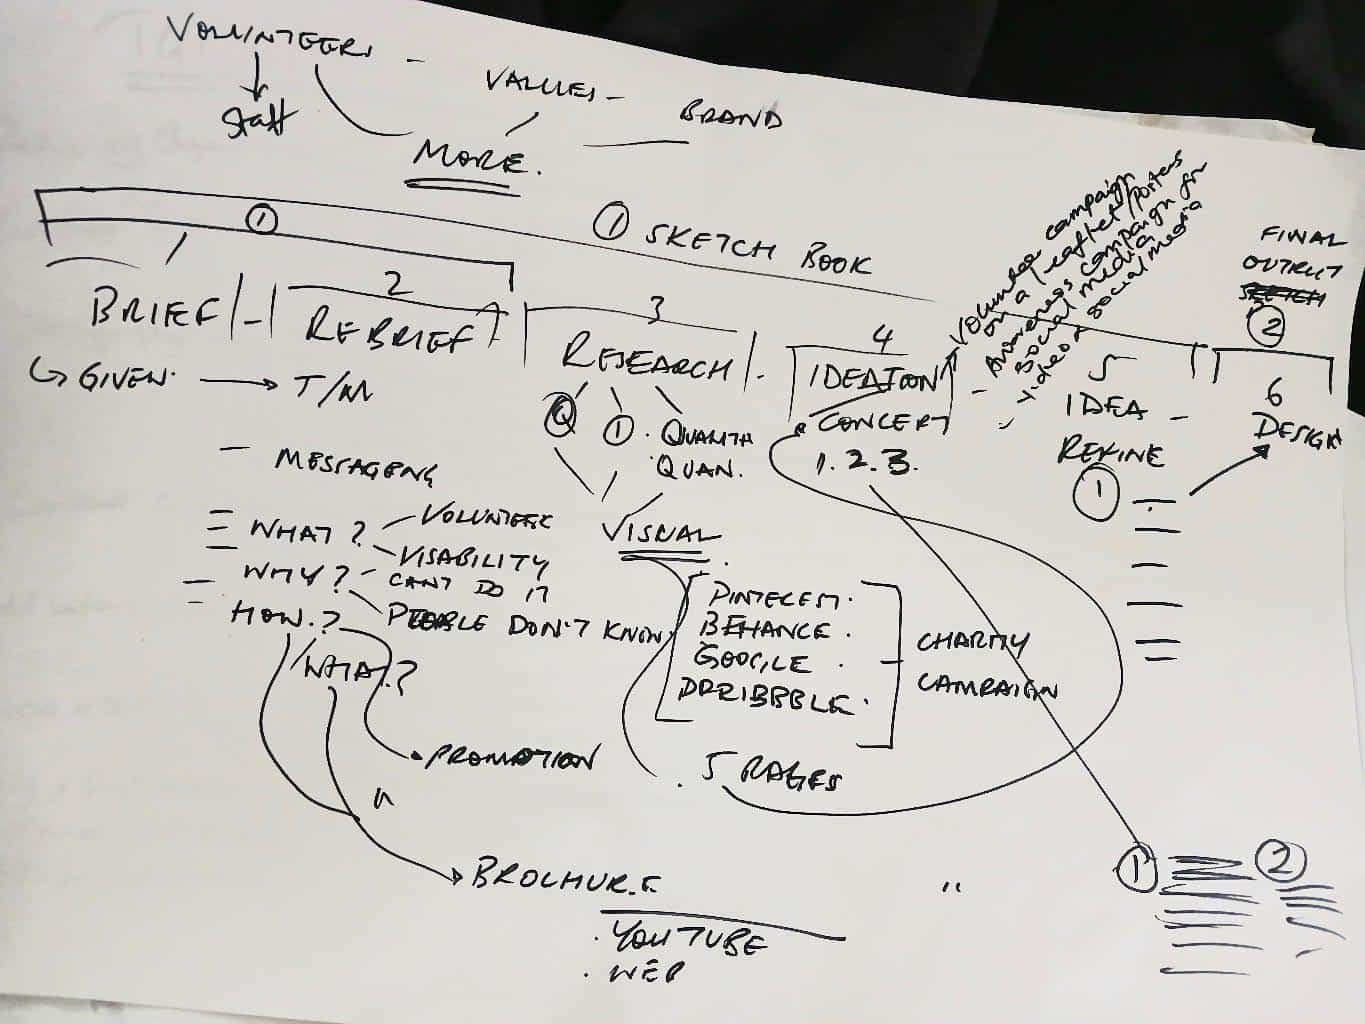 VOLUNTEERS - VALUES - BRAND
Staff
MORE.
① ① SKETCH BOOK
Volunteer campaign
on a leaflet/posters
- Awareness campaign for
social media
video & social media
FINAL
OUTPUT
SKETCH
②
BRIEF/-/ 2 REBRIEF
3 RESEARCH/-
4 IDEATION
CONCEPT
1. 2. 3.
5 IDEA -
REFINE
①
6
DESIGN
GIVEN. → T/M
Q ① · QUALIT
QUAN.
VISUAL
- MESSAGENG
WHAT? - VOLUNTEER
- VISABILITY
WHY? - CAN'T DO IT
- PEOPLE DON'T KNOW
HOW.?
/WHAT.?
PINTEREST.
BEHANCE.
GOOGLE.
DRRIBBBLE.
CHARITY
CAMPAIGN
PROMOTION
. 5 PAGES
"
BROCHURE "
. YOUTUBE
. WEB
① ②